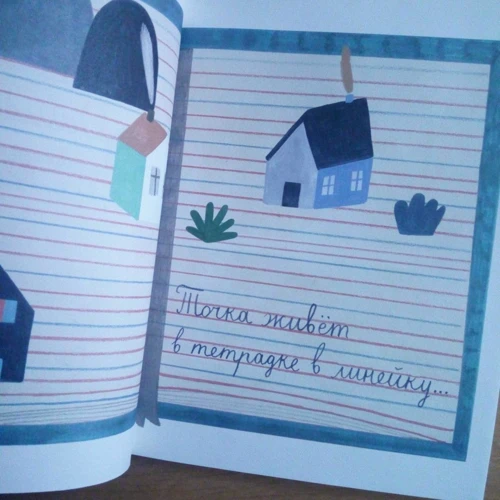 Точка живёт
в тетрадке в линейку...